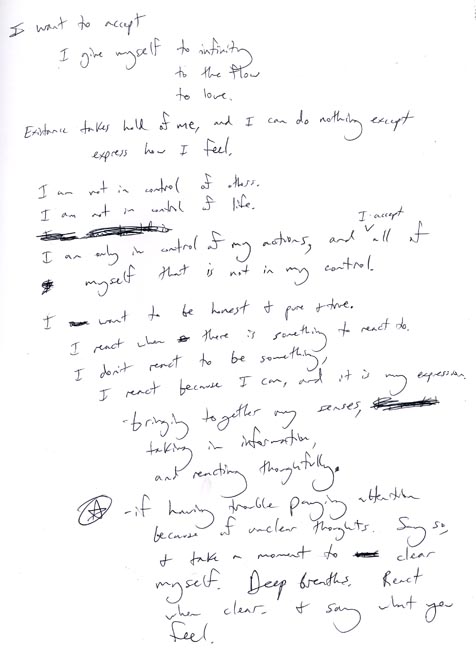 I want to accept
I give myself to infinity
to the flow
to love.
Existance takes hold of me, and I can do nothing except
express how I feel.
I am not in control of others.
I am not in control of life.
I am only in control of my actions, and I accept all of
myself that is not in my control.
I want to be honest & pure & true.
I react when there is something to react to.
I don't react to be something,
I react because I can, and it is my expression.
-bringing together my senses,
taking in information,
and reacting thoughtfully.
-if having trouble paying attention
because of unclear thoughts. Say so,
& take a moment to clear
myself. Deep breaths. React
when clear. & say what you
feel.